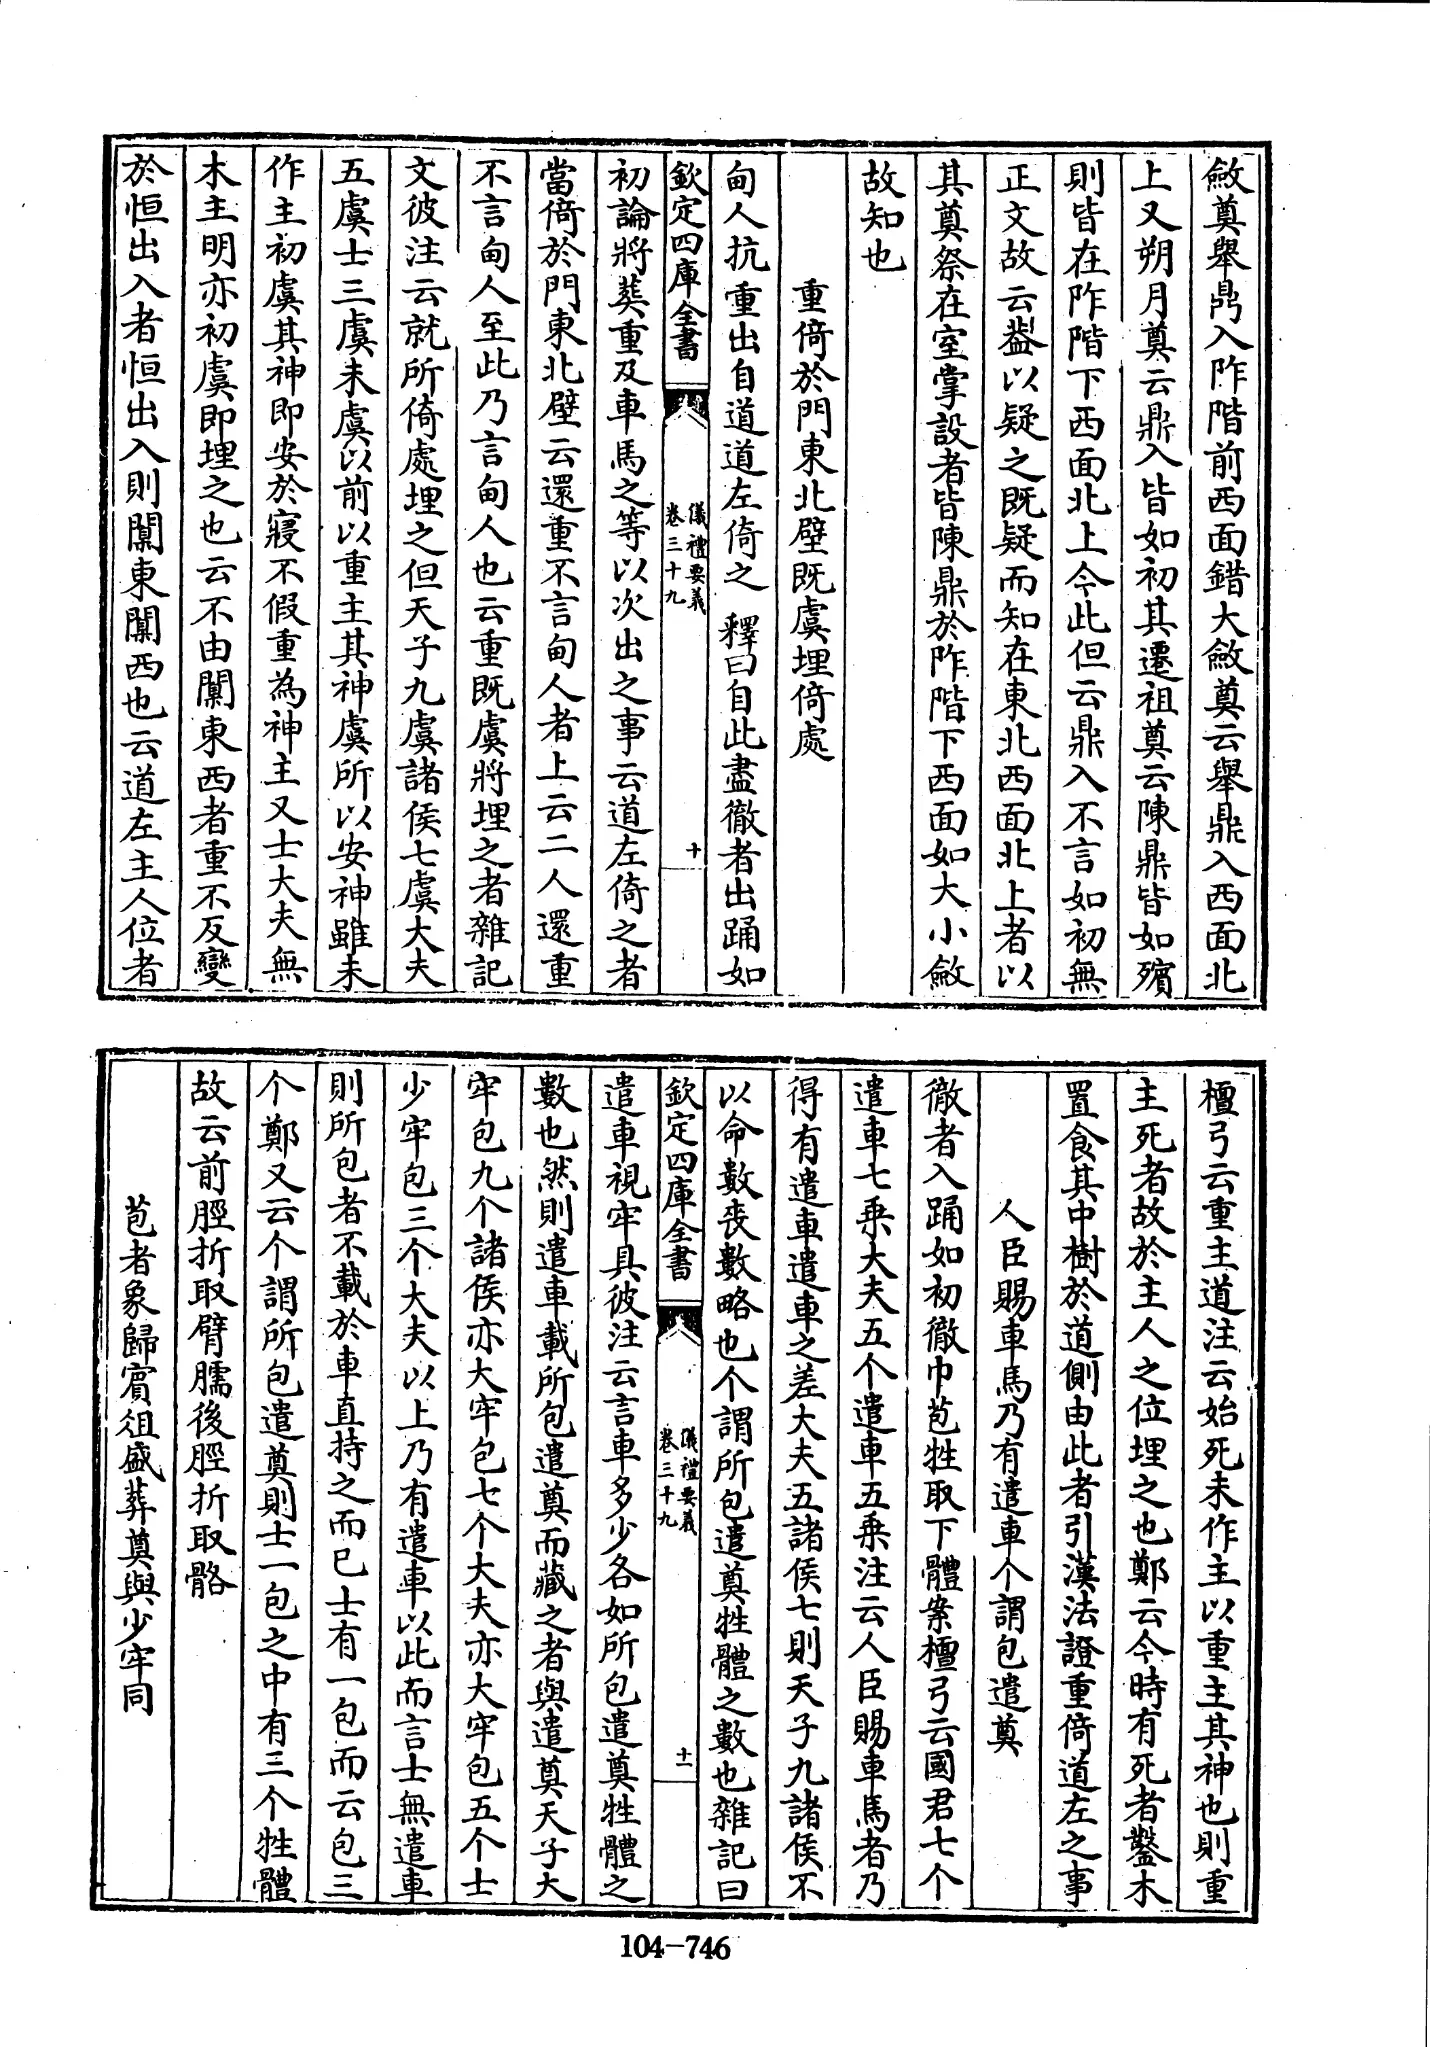 斂奠舉鼎入阼階前西面錯大斂奠云舉鼎入西面北
上又朔月奠云鼎入皆如初其遷祖奠云陳鼎皆如殯
則皆在阼階下西面北上今此但云鼎入不言如初無
正文故云葢以疑之既疑而知在東北西面北上者以
其奠祭在室掌設者皆陳鼎於阼階下西面如大小斂
故知也
重倚於門東北壁既虞埋倚處
甸人抗重出自道道左倚之 釋曰自此盡徹者出踊如
欽定四庫全書
儀禮要義
卷三十九
十
初論將葬重及車馬之等以次出之事云道左倚之者
當倚於門東北壁云還重不言甸人者上云二人還重
不言甸人至此乃言甸人也云重既虞將埋之者雜記
文彼注云就所倚處埋之但天子九虞諸侯七虞大夫
五虞士三虞未虞以前以重主其神虞所以安神雖未
作主初虞其神即安於寢不假重為神主又士大夫無
木主明亦初虞即埋之也云不由闑東西者重不反變
於恒出入者恒出入則闑東闑西也云道左主人位者
檀弓云重主道注云始死未作主以重主其神也則重
主死者故於主人之位埋之也鄭云今時有死者鑿木
置食其中樹於道側由此者引漢法證重倚道左之事
人臣賜車馬乃有遣車个謂包遣奠
徹者入踊如初徹巾苞牲取下體案檀弓云國君七个
遣車七乘大夫五个遣車五乘注云人臣賜車馬者乃
得有遣車遣車之差大夫五諸侯七則天子九諸侯不
以命數喪數略也个謂所包遣奠牲體之數也雜記曰
欽定四庫全書
儀禮要義
卷三十九
十一
遣車視牢具彼注云言車多少各如所包遣奠牲體之
數也然則遣車載所包遣奠而藏之者與遣奠天子大
牢包九个諸侯亦大牢包七个大夫亦大牢包五个士
少牢包三个大夫以上乃有遣車以此而言士無遣車
則所包者不載於車直持之而已士有一包而云包三
个鄭又云个謂所包遣奠則士一包之中有三个牲體
故云前脛折取臂臑後脛折取骼
苞者象歸賓俎盛葬奠與少牢同
104-746